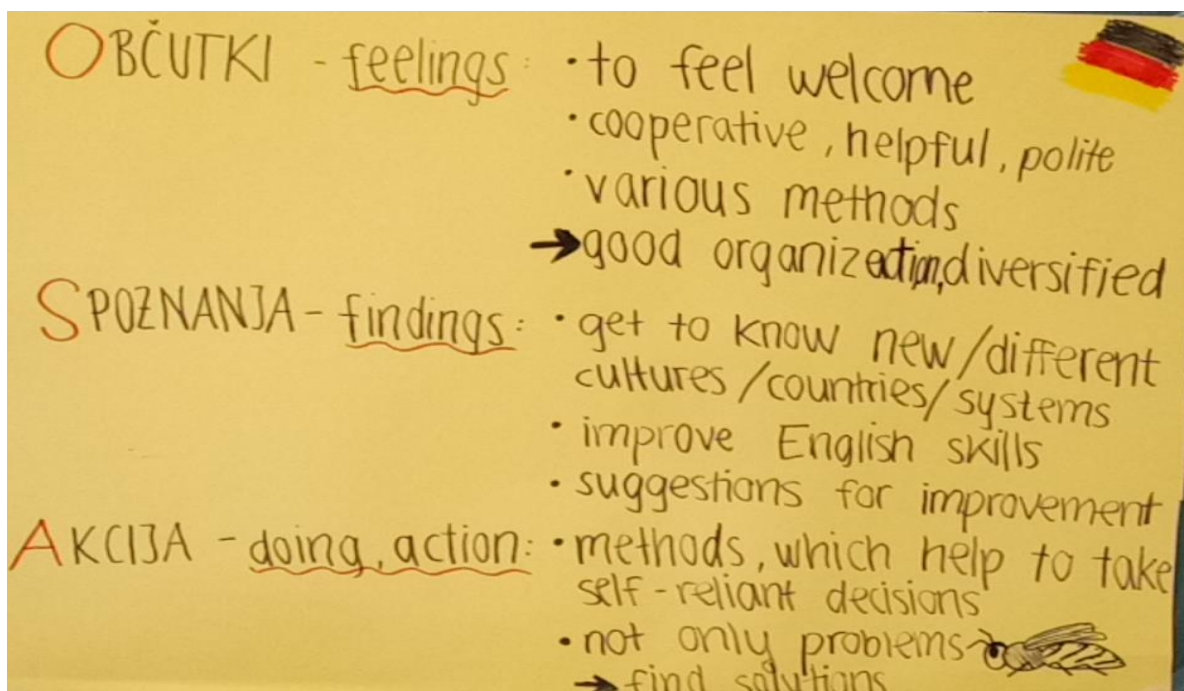 OBČUTKI - feelings: • to feel welcome
• cooperative, helpful, polite
• various methods
→ good organization, diversified
SPOZNANJA - findings: • get to know new/different
cultures/countries/systems
• improve English skills
• suggestions for improvement
AKCIJA - doing, action: • methods, which help to take
self-reliant decisions
• not only problems
→ find solutions